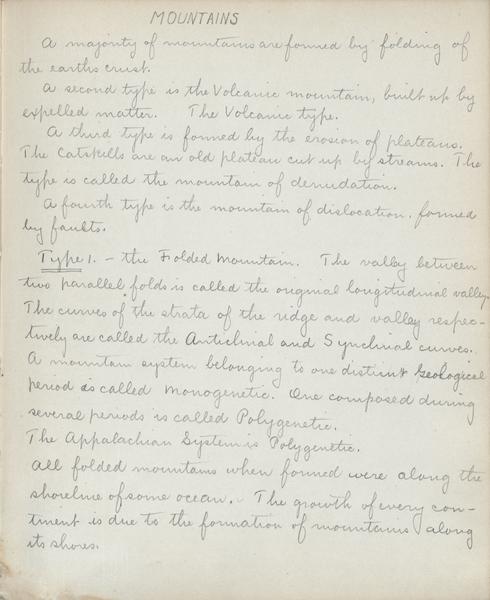 MOUNTAINS
A majority of mountains are formed by folding of
the earths crust.
A second type is the Volcanic mountain, built up by
expelled matter. The Volcanic type.
A third type is formed by the erosion of plateaus.
The Catskills are an old plateau cut up by streams. The
type is called the mountain of denudation.
A fourth type is the mountain of dislocation, formed
by faults.
Type 1. - the Folded Mountain. The valley between
two parallel folds is called the original longitudinal valley.
The curves of the strata of the ridge and valley respec-
tively are called the Anticlinal and Synclinal curves.
A mountain system belonging to one distinct Geological
period is called Monogenetic. One composed during
several periods is called Polygenetic.
The Appalachian System is Polygenetic.
All folded mountains when formed were along the
shoreline of some ocean. The growth of every con-
tinent is due to the formation of mountains along
its shores.